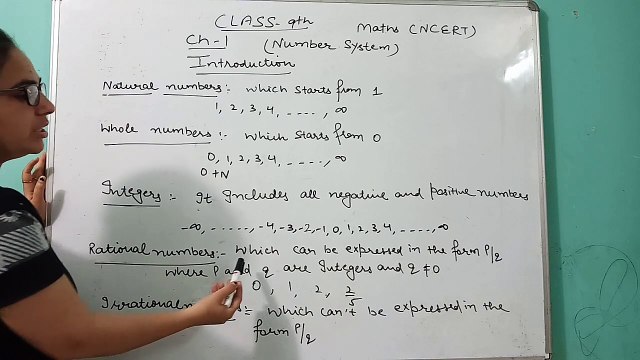 CLASS-9th
Maths (NCERT)
Ch-1 (Number System)
Introduction
Natural numbers:- which starts from 1
1, 2, 3, 4, ....., ∞
Whole numbers:- which starts from 0
0, 1, 2, 3, 4, ....., ∞
0 + N
Integers:- It includes all negative and positive numbers
-∞, ......, -4, -3, -2, -1, 0, 1, 2, 3, 4, ......, ∞
Rational numbers:- which can be expressed in the form P/q
where P and q are Integers and q ≠ 0
0, 1, 2, 2/5
Irrational := which can't be expressed in the
form P/q